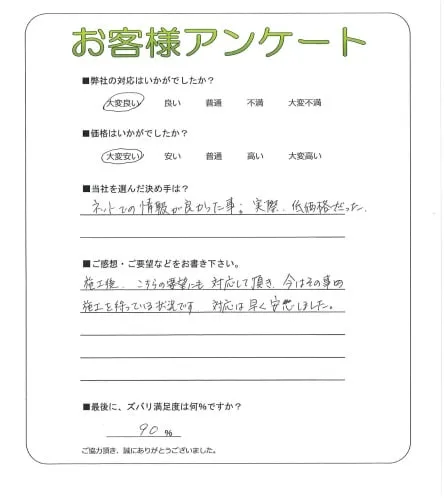 お客様アンケート
■弊社の対応はいかがでしたか？
大変良い 良い 普通 不満 大変不満
■価格はいかがでしたか？
大変安い 安い 普通 高い 大変高い
■当社を選んだ決め手は？
ネットでの情報が良かった事。実際、低価格だった。
■ご感想・ご要望などをお書き下さい。
施工後、こちらの要望にも対応して頂き、今はその事の
施工を待っている状況です。対応は早く安心しました。
■最後に、ズバリ満足度は何%ですか？
90 %
ご協力頂き、誠にありがとうございました。